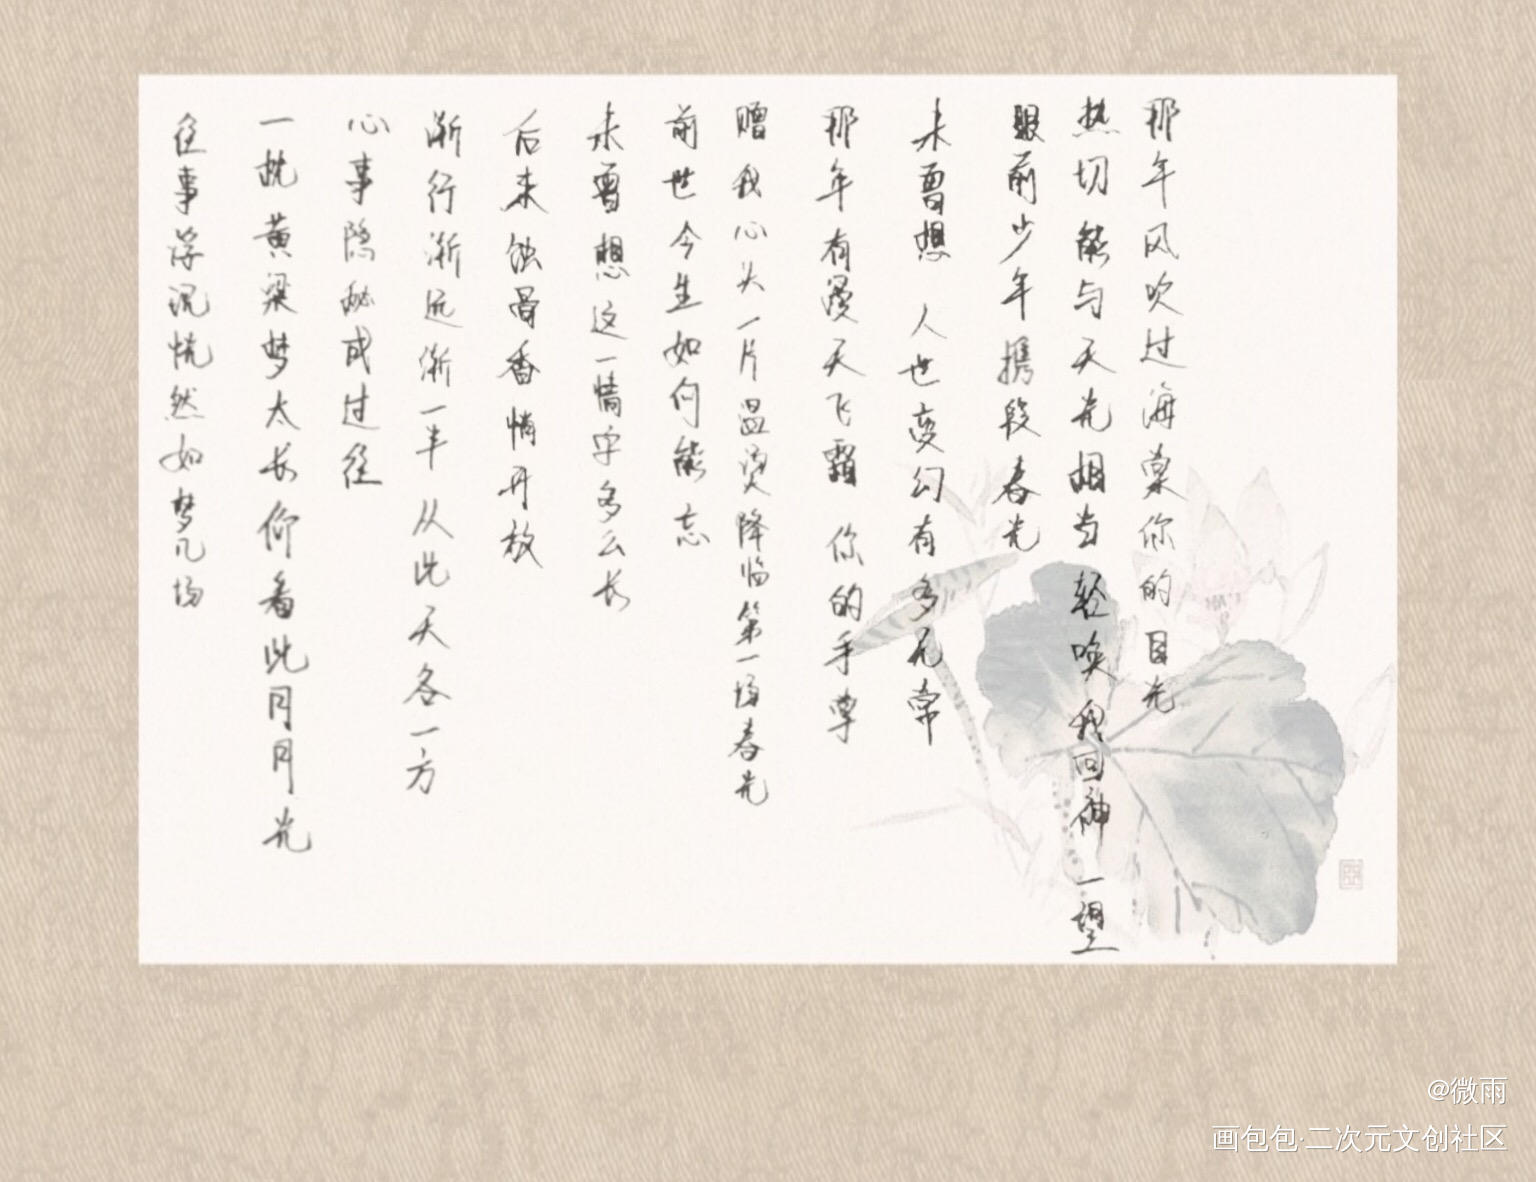 那年风吹过海棠你的目光
热切能与天光相当 轻唤我回神一望
眼前少年携段春光
未曾想 人世变幻有多无常
那年有漫天飞霜 你的手掌
赠我心头一片温烫降临第一场春光
前世今生如何能忘
未曾想这一情字多么长
后来蚀骨香悄开放
渐行渐远渐一半 从此天各一方
心事隐秘成过往
一枕黄粱梦太长你看此间月光
往事浮沉恍然如梦几场
@微雨
画包包·二次元文创社区